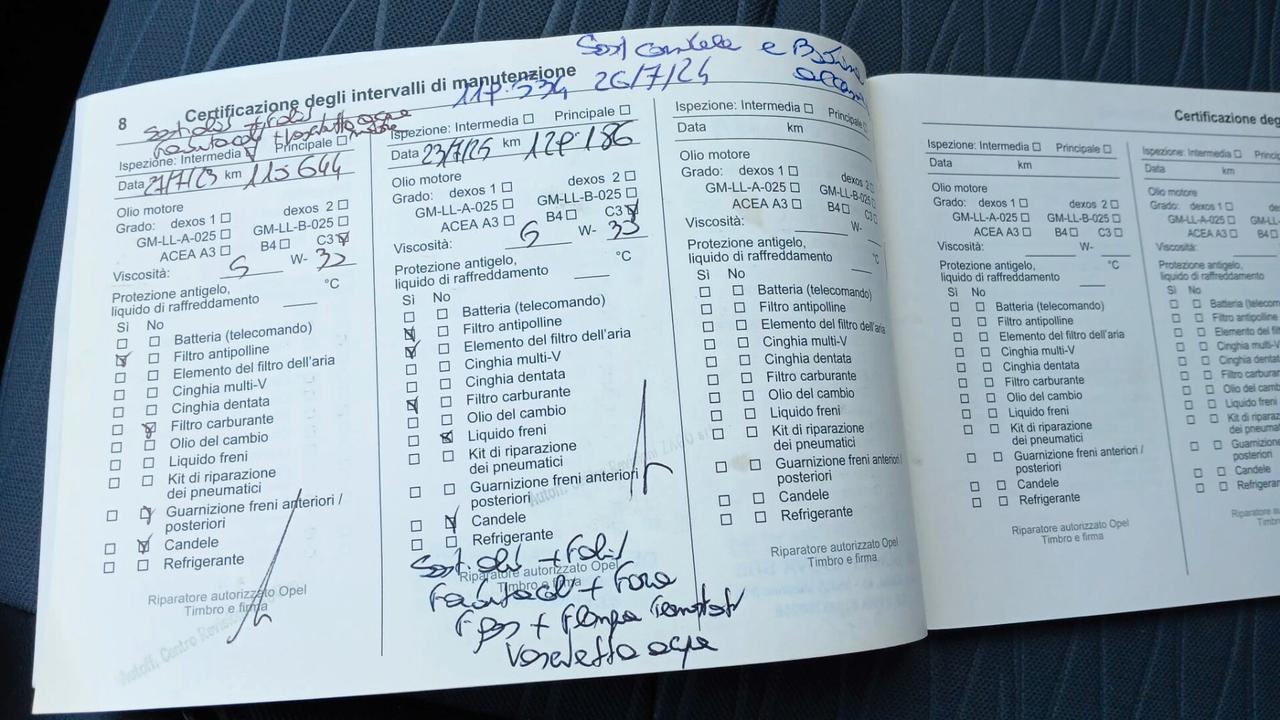 8 Certificazione degli intervalli di manutenzione
Sost candele e
26/7/24
Ispezione: Intermedia Principale
Data 27/7/23 km 115644
Olio motore
Grado: dexos 1 dexos 2
GM-LL-A-025 GM-LL-B-025
ACEA A3 B4 C3
Viscosità: 5 W-
Protezione antigelo, °C
liquido di raffreddamento
Sì No
Batteria (telecomando)
Filtro antipolline
Elemento del filtro dell'aria
Cinghia multi-V
Cinghia dentata
Filtro carburante
Olio del cambio
Liquido freni
Kit di riparazione
dei pneumatici
Guarnizione freni anteriori /
posteriori
Candele
Refrigerante
Riparatore autorizzato Opel
Timbro e firma
Autoffi. Centro
Ispezione: Intermedia Principale
Data 23/7/25 km 127.186
Olio motore
Grado: dexos 1 dexos 2
GM-LL-A-025 GM-LL-B-025
ACEA A3 B4 C3
Viscosità: 5 W-
Protezione antigelo, °C
liquido di raffreddamento
Sì No
Batteria (telecomando)
Filtro antipolline
Elemento del filtro dell'aria
Cinghia multi-V
Cinghia dentata
Filtro carburante
Olio del cambio
Liquido freni
Kit di riparazione
dei pneumatici
Guarnizione freni anteriori
posteriori
Candele
Refrigerante
Riparatore autorizzato Opel
Timbro e
Vaschetta acqua
Ispezione: Intermedia Principale
Data km
Olio motore
Grado: dexos 1 dexos 2
GM-LL-A-025 GM-LL-B-025
ACEA A3 B4 C3
Viscosità: W-
Protezione antigelo, °C
liquido di raffreddamento
Sì No
Batteria (telecomando)
Filtro antipolline
Elemento del filtro dell'aria
Cinghia multi-V
Cinghia dentata
Filtro carburante
Olio del cambio
Liquido freni
Kit di riparazione
dei pneumatici
Guarnizione freni anteriori/
posteriori
Candele
Refrigerante
Riparatore autorizzato Opel
Timbro e firma
Certificazione deg
Ispezione: Intermedia Principale
Data km
Olio motore
Grado: dexos 1 dexos 2
GM-LL-A-025 GM-LL-B-025
ACEA A3 B4 C3
Viscosità: W-
Protezione antigelo, °C
liquido di raffreddamento
Sì No
Batteria (telecomando)
Filtro antipolline
Elemento del filtro dell'aria
Cinghia multi-V
Cinghia dentata
Filtro carburante
Olio del cambio
Liquido freni
Kit di riparazione
dei pneumatici
Guarnizione freni anteriori /
posteriori
Candele
Refrigerante
Riparatore autorizzato Opel
Timbro e firma
Ispezione: Intermedia Princip
Data km
Olio motore
Grado: dexos 1 de
GM-LL-A-025 GM-LL-
ACEA A3 B4
Viscosità: W-
Protezione antigelo,
liquido di raffreddamento
Sì No
Batteria (teleco
Filtro antipolline
Elemento del filtro
Cinghia multi-V
Cinghia dentata
Filtro carburant
Olio del cambio
Liquido freni
Kit di riparaz
dei pneumat
Guarnizione
posteriori
Candele
Refrigeran
Riparatore autoriz
Timbro e